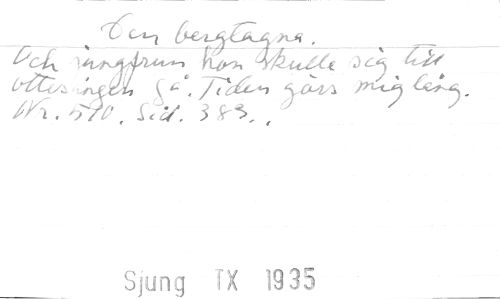 Den bergtagna.
Och jungfrun hon skulle sig till
ottesången gå. Tiden görs mig lång.
Nr. 510. Sid. 383.
Sjung TX 1935